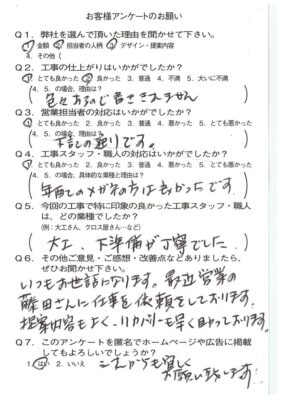 お客様アンケートのお願い
Q1. 弊社を選んで頂いた理由を聞かせて下さい。
1. 金額 2. 担当者の人柄 3. デザイン・提案内容
4. その他(
Q2. 工事の仕上がりはいかがでしたか?
1. とても良かった 2. 良かった 3. 普通 4. 不満 5. 大いに不満
(4. 5. の場合、理由は?)
色々あるので書ききれません
Q3. 営業担当者の対応はいかがでしたか?
1. とても良かった 2. 良かった 3. 普通 4. 悪かった 5. とても悪かった
(4. 5. の場合、理由は?)
下記の通りです。
Q4. 工事スタッフ・職人の対応はいかがでしたか?
1. とても良かった 2. 良かった 3. 普通 4. 悪かった 5. とても悪かった
(4. 5. の場合、具体的な職種と理由は?)
年配のメガネの方はよかったです
Q5. 今回の工事で特に印象の良かった工事スタッフ・職人
は、どの業種でしたか?
(例:大工さん、クロス屋さん…など)
大工、下準備が丁寧でした
Q6. その他ご意見・ご感想・改善点などありましたら、
ぜひお聞かせ下さい。
いつもお世話になります。最近営業の
藤田さんに仕事を依頼をしております。
提案内容もよく、リカバリーも早く助っております。
Q7. このアンケートを匿名でホームページや広告に掲載
してもよろしいでしょうか?
1. はい 2. いいえ
これからも宜しく
お願い致します